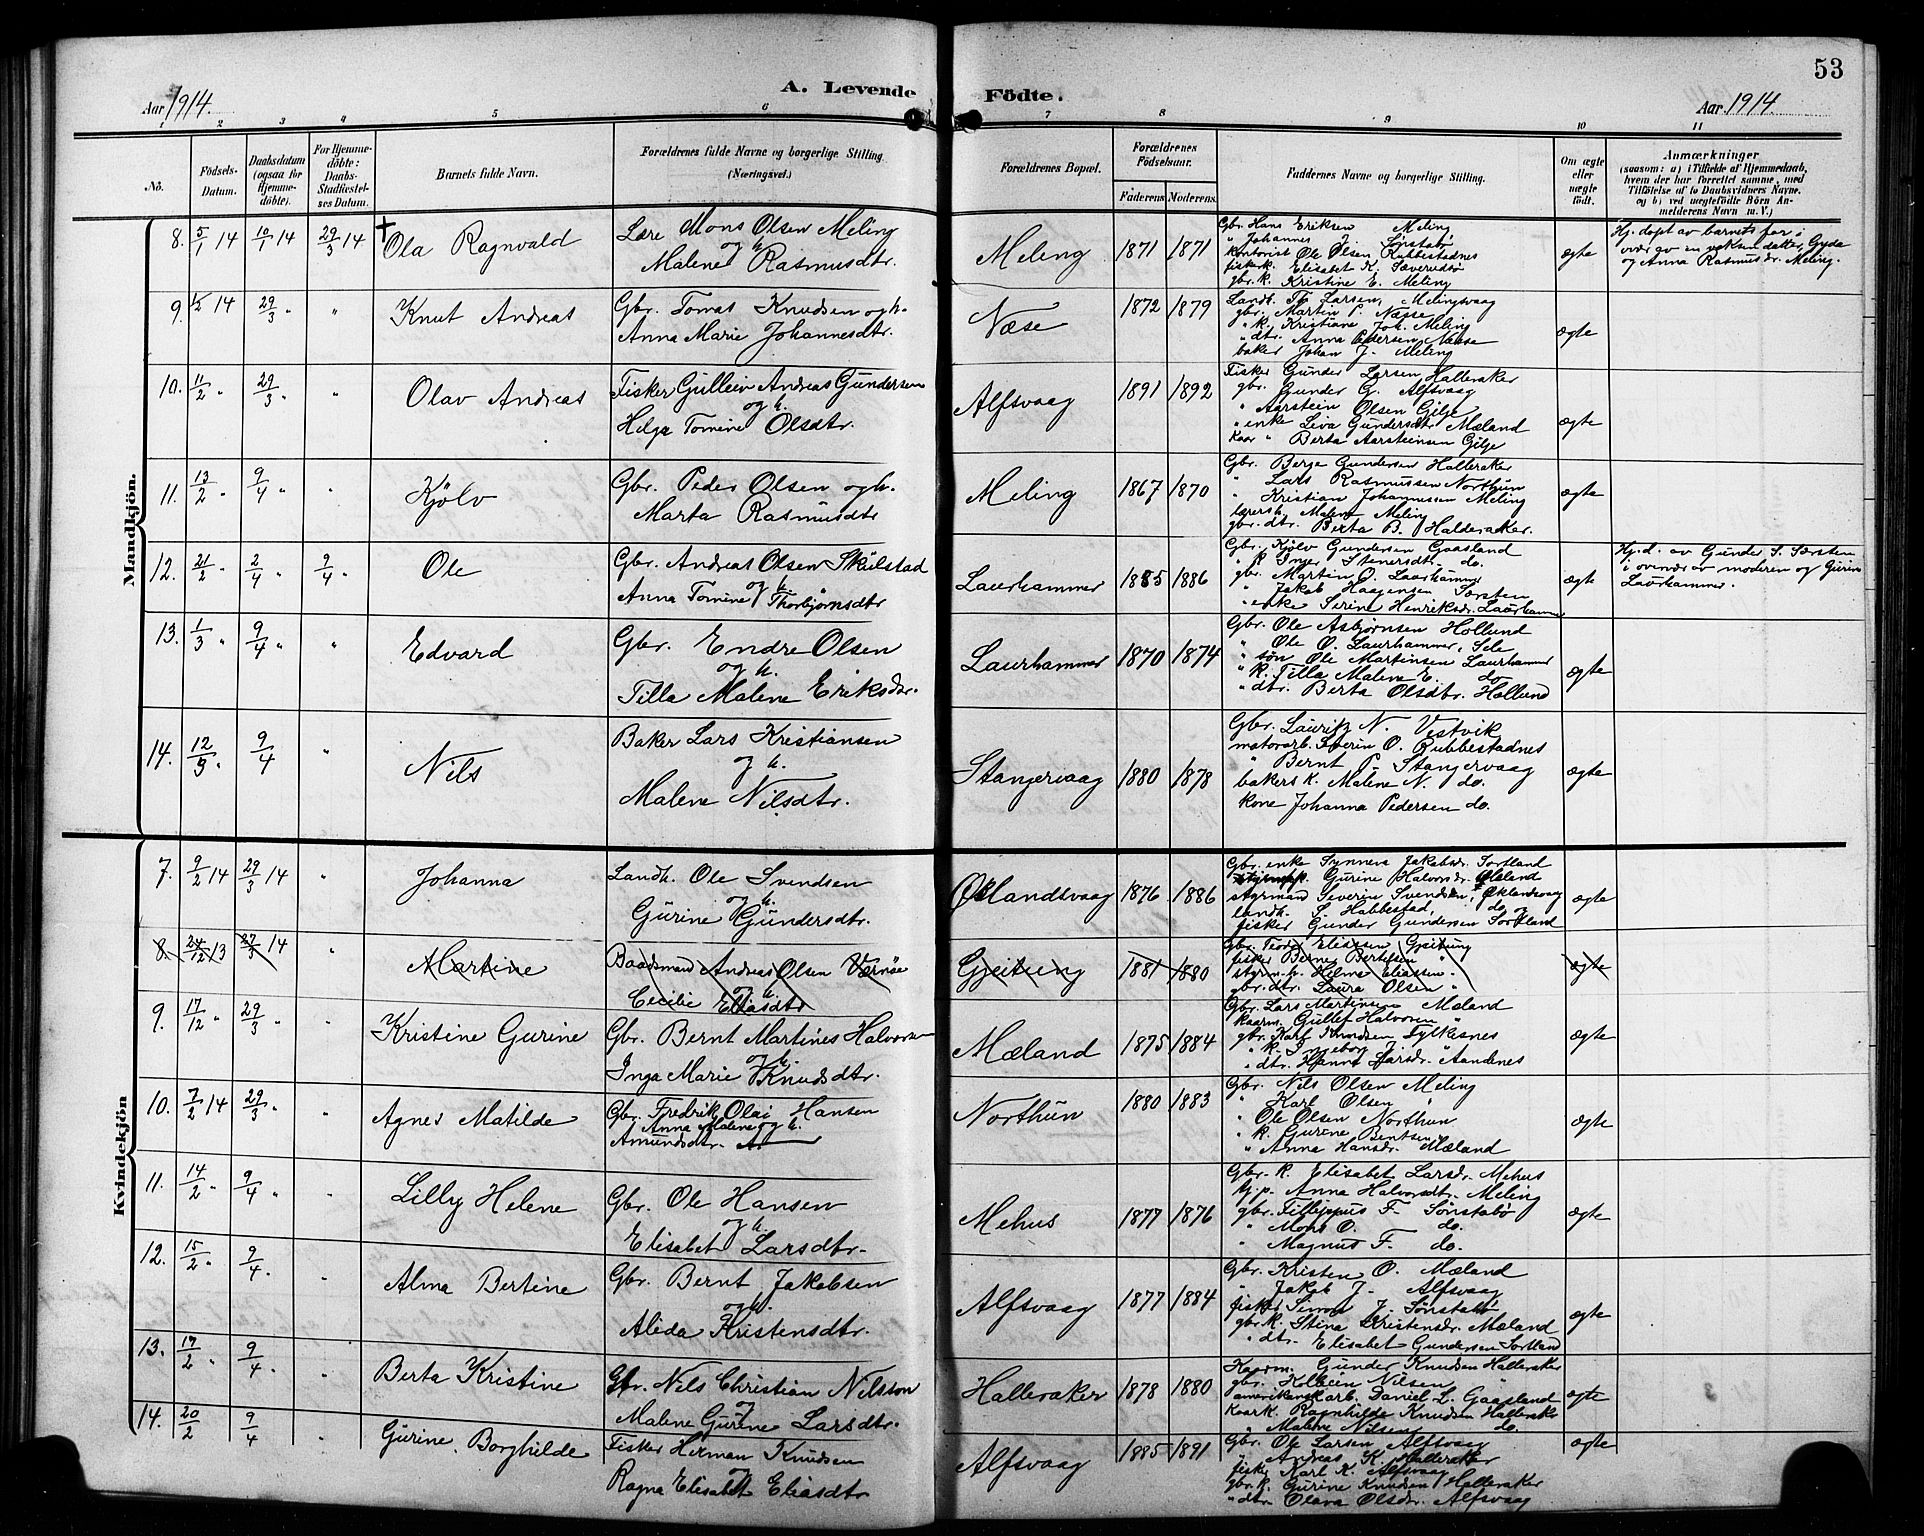 53
A. Levende Födte.
Aar 1914.
Aar 1914.
1 2 3 4 5 6 7 8 9 10 11
No.
Födsels-Datum.
Daabsdatum (ogsaa for Hjemme-döbte).
For Hjemme-döbte: Daabs-Stadfæstel-ses Datum.
Barnets fulde Navn.
Forældrenes fulde Navne og borgerlige Stilling (Næringsvei.)
Forældrenes Bopæl.
Forældrenes Födselsaar.
Faderens Moderens
Faddernes Navne og borgerlige Stilling.
Om ægte eller uægte födt.
Anmærkninger
(saasom: a) i Tilfælde af Hjemmedaab, hvem der har forrettet samme, med Tilföielse af to Daabsvidners Navne, og b) ved uægtefödte Börn Anmelderens Navn m. V.)
Mandkjön.
8. 5/1 14 10/1 14 29/3 14 † Ola Ragnvald
Lære Mons Olsen Meling
og h.
Malene Rasmusdtr.
Meling 1871 1871
Gbr. Hans Eriksen Meling
" Johannes J. Sønstabø
Kontorist Ole Olsen Rubbestadnes
fisker k. Elisabet K. Sæverudsø
gbr. k. Kristine E. Meling
ægte
Hj. døpt av barnets far i
overvær av en voksen datter Gyda
og Anna Rasmusdr. Meling.
9. 1/2 14 29/3 " " Knut Andreas
Gbr. Tomas Knudsen og h.
Anna Marie Johannesdtr.
Næse 1872 1879
Landh. Th Larsen, Melingsvaag
gbr. Martin P. Næse
" k. Kristiane Joh. Meling
" dtr. Anna Pedersen Næse
baker Johan J. Meling
ægte
10. 11/2 " 29/3 " " Olav Andreas
Fisker Gullein Andreas Gundersen
og h.
Helga Tomine Olsdtr.
Alfsvaag 1891 1892
Fisker Gunder Larsen Halleraker
gbr. Gunder G. Alfsvaag
" Aarstein Olsen Gilje
" enke Liva Gundersdtr Mæland
Kaar " Berta Aarsteinsen Gilje
ægte
11. 13/2 " 9/4 " " Kjölv
Gbr. Peder Olsen og h.
Marta Rasmusdtr
Meling 1867 1870
Gbr. Berge Gundersen Halleraker
" Lars Rasmussen Northun
" Kristian Johannessen Meling
lærersk. Malene Meling
gbr. dtr. Berta B. Halderaker.
ægte
12. 21/2 " 2/4 " 9/4 " Ole
Gbr. Andreas Olsen Skulstad
og h.
Anna Tomine Thorbjørnsdtr
Laurhammer 1885 1886
Gbr. Kjölv Gundersen Gaasland
" k. Inger Stenersdtr. do.
gbr. Martin O. Laurhammer
" Jakob Haagensen Sørsten
" enke Serine Henriksdr. Laurhammer
ægte
Hj. d. av Gunder S. Sørsten
i overvær av moderen og Gurine
Laurhammer.
13. 1/3 " 9/4 " " Edvard
Gbr. Endre Olsen
og h.
Tilla Malene Eriksdtr.
Laurhammer 1870 1874
Gbr. Ole Asbjørnsen Hollund
" Ole O. Laurhammer, Sele
" søn Ole Martinsen Laurhammer
" k. Tilla Malene E. do
" dtr. Berta Olsdtr. Hollund
ægte
14. 12/3 9/4 " Nils
Baker Lars Kristiansen
og h.
Malene Nilsdtr.
Stangervaag 1880 1878
Gbr. Lauritz N. Vestvik
motorarb. Severin O. Rubbestadnes
" Bernt P. Stangervaag
bakers k. Malene N. do.
kone Johanna Pedersen do.
ægte
Kvindekjön
7. 9/2 14 29/3 14 " Johanna
Landh. Ole Svendsen
og h.
Gurine Gundersdtr.
Øklandsvaag 1876 1886
Gbr. enke Synneva Jakobsdr. Sortland
Gurine Halvorsdr. Økland
styrmand Severin Svendsen, Øklandsvaag
landh. S. Habbestad, do og
fisker Gunder Gundersen Sortland
ægte
8 24/12 13 27/3 14 " Martine
Baadsmand Andreas Olsen Værøse
og h.
Cecilie Eliasdtr
Gjeitung 1881 1880
Gbr. Teodor Eliesen Gjeitung
fisker Berner Bertelsen "
styrm. h. Helma Eliassen "
gbr. dtr. Laura Olsen "
ægte
9. 17/12 " 29/3 " " Kristine Gurine
Gbr. Bernt Martines Halvorsen
og h.
Inga Marie Knudsdtr.
Mæland 1875 1884
Gbr. Lars Martinsen Mæland
kaarm. Gullef Halvorsen "
gbr. Karl Knudsen Fylkesnes
" k. Ingeborg J. "
" dtr. Hanna Larsdr. Aandenes
ægte
10. 7/2 14 29/3 " " Agnes Matilde
Gbr. Fredrik Olai Hansen
Anna Malene og h.
Amundsdtr.
Northun 1880 1883
Gbr. Nils Olsen Meling
" Karl Olsen "
" Ole Olsen Northun
" k. Gurine Bentsen "
" Anna Hansdr. Mæland
ægte
11. 14/2 " 9/4 " " Lilly Helene
Gbr. Ole Hansen
og h.
Elisabet Larsdtr.
Mehus 1877 1876
Gbr. k. Elisabet Larsdr. Mehus
hj. p. Anna Halvorsdtr. Meling
gbr. Fillippus F. Sønstabø
" Mons O. do.
" Magnus F. do.
ægte
12. 15/2 " 9/4 " " Alma Bertine
Gbr. Bernt Jakobsen
og h.
Alida Kristensdtr.
Alfsvaag 1877 1884
Gbr. Kristen O. Mæland
" Jakob J. Alfsvaag
fisker Simon J. Sønstabø
gbr. k. Stina Kristensdr. Mæland
" dtr. Elisabet Gundersen Sortland
ægte
13. 17/2 " 9/4 " Berta Kristine
Gbr. Nils Christian Nilsson
og
Malene Gurine Larsdtr.
Halleraker 1878 1880
Kaarm. Gunder Knudsen Halleraker
gbr. Kolbein Nilsen "
amerikansk arb. Daniel L. Gaasland
Kaark. Ragnhilde Knudsen Halleraker
" Malene Nilsen do.
ægte
14. 20/2 9/4 " Gurine Borghilde
Fisker Herman Knudsen
og
Ragna Elisabet Eliasdtr
Alfsvaag 1885 1891
Gbr. Ole Larsen Alfsvaag
" Andreas K. Halleraker
fisker Karl K. Alfsvaag
gbr. k. Gurine Knudsen Halleraker
" dtr. Olava Olsdr. Alfsvaag
ægte